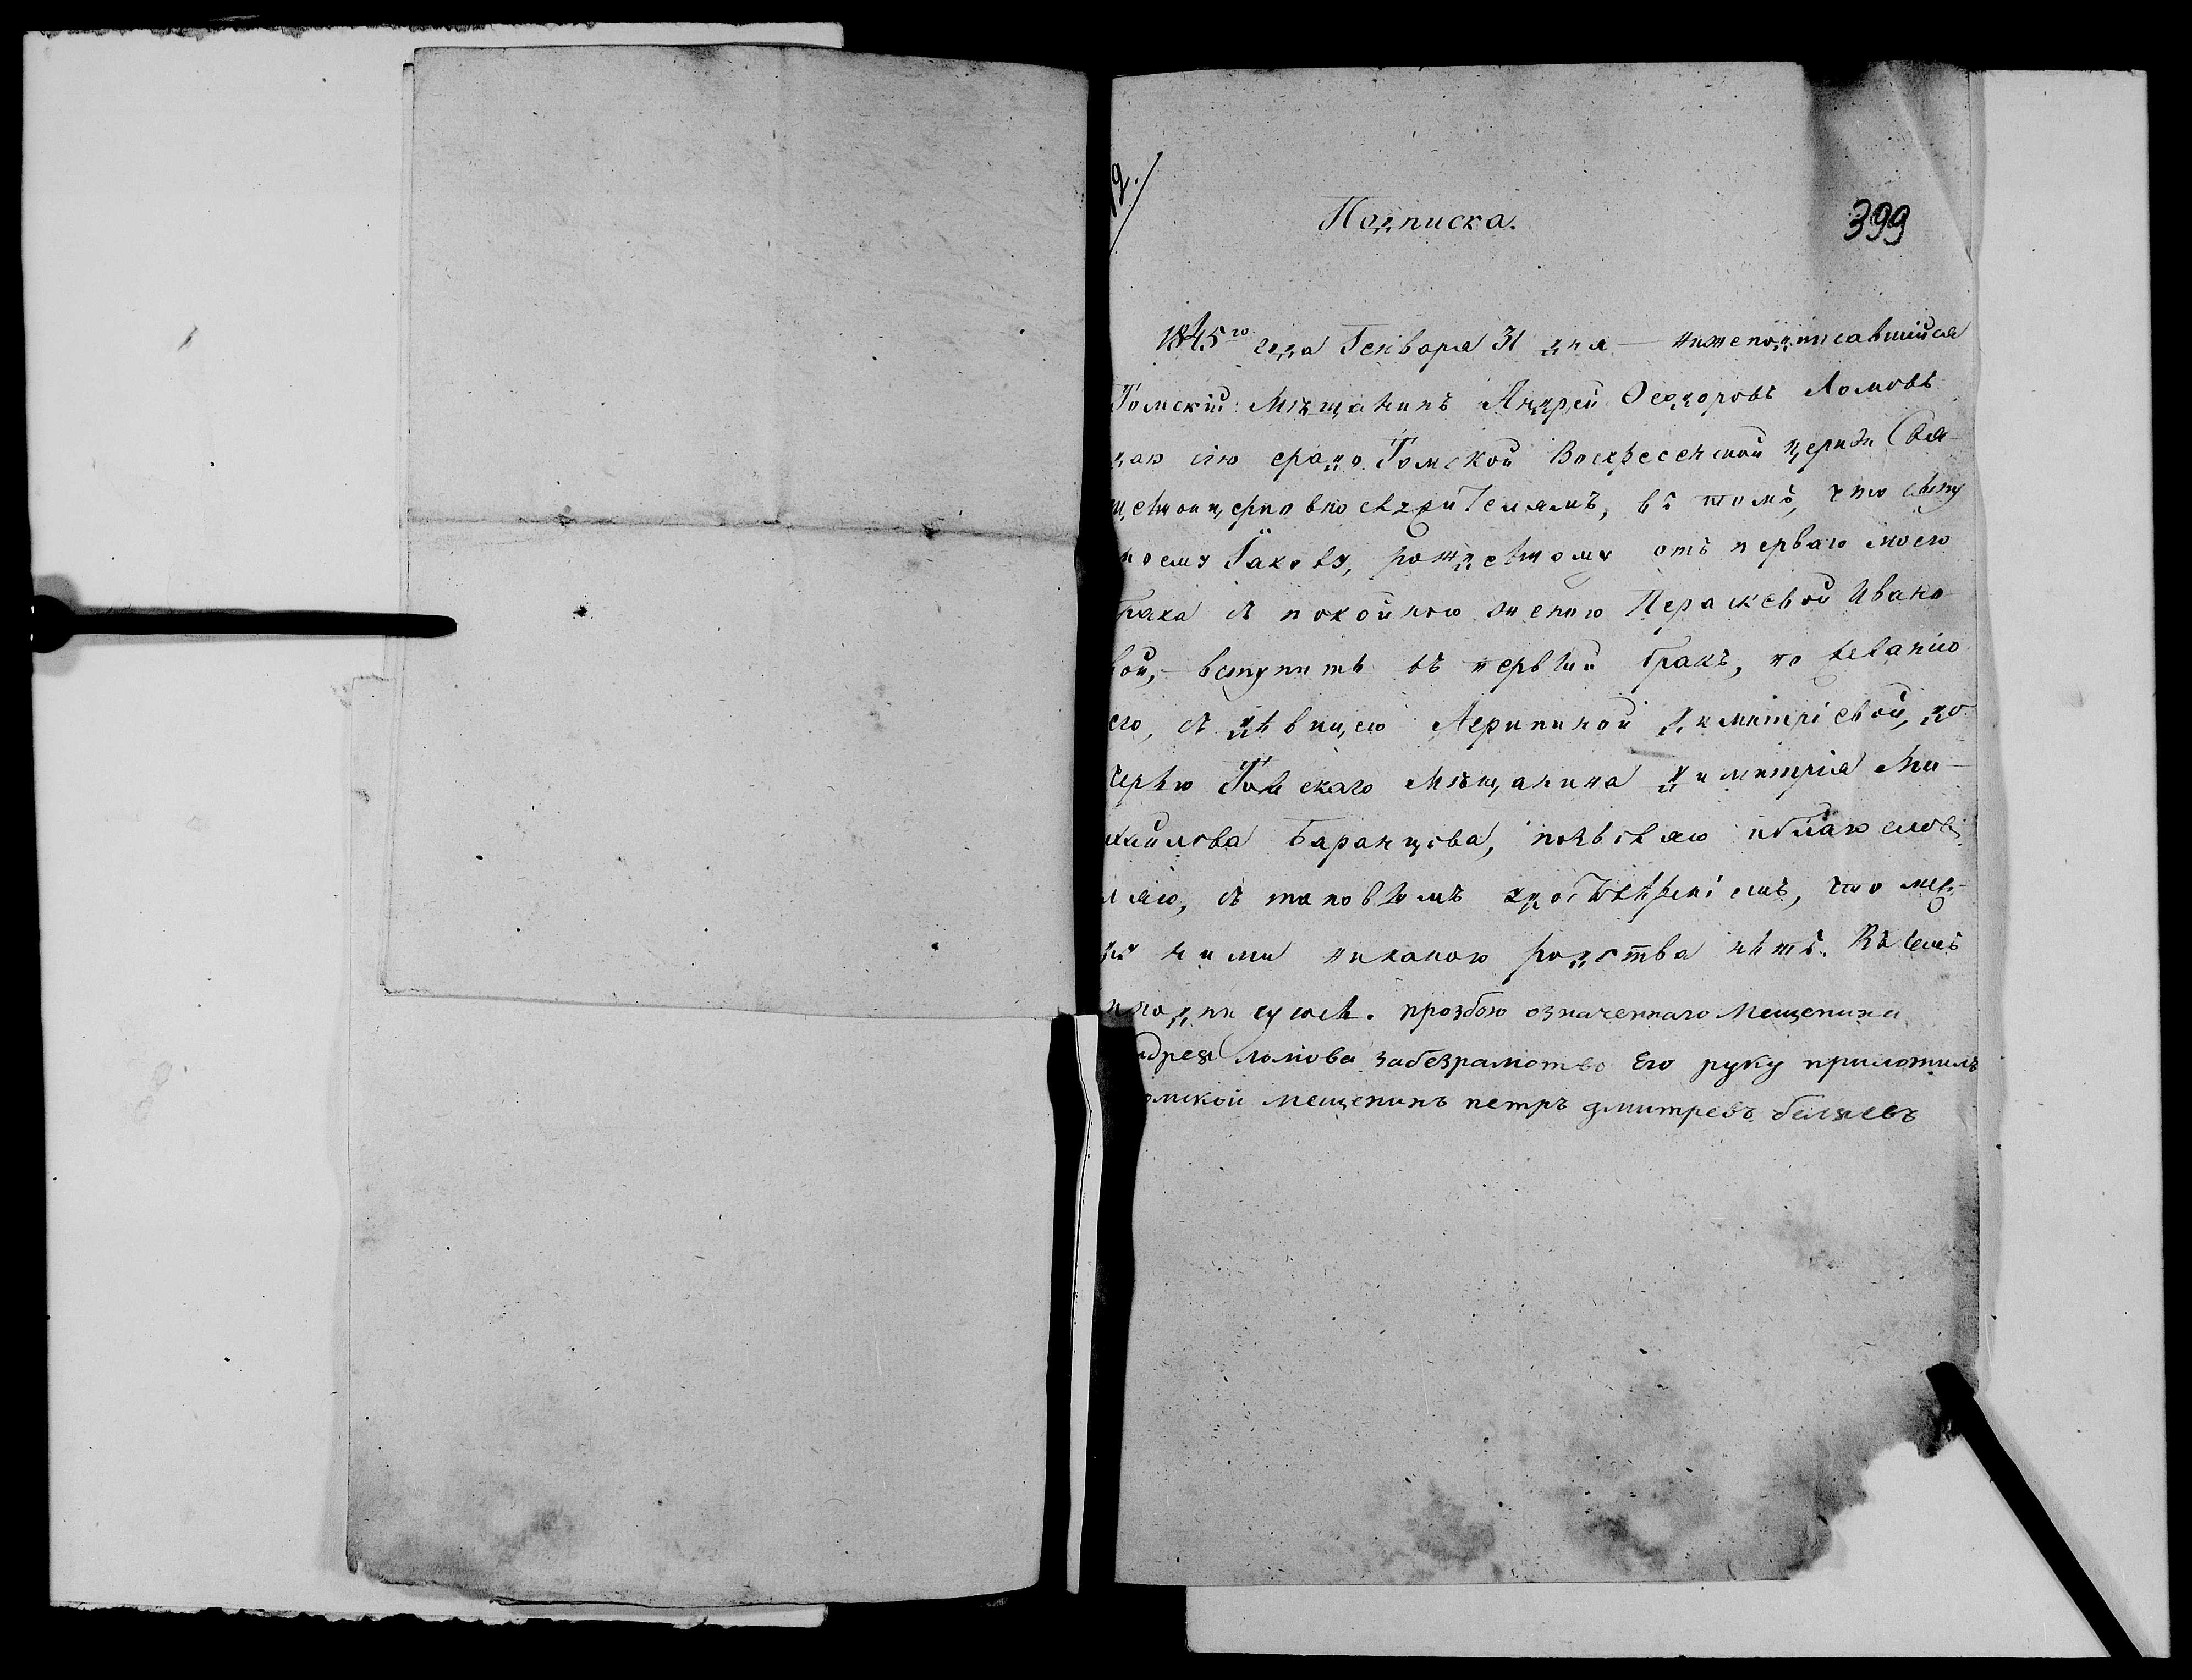 12.
Подписка.
399
1845го года Генваря 31 дня — нижеподписавшийся
Томскій Мѣщанинъ Андрей Ѳеодоровъ Ломовъ
даю сію градо Томской Воскресенской церкви Свя-
щенноцерковнослужителямъ, въ томъ, что сыну
моему Іакову, рожденному отъ перваго моего
брака съ покойною женою Параскевой Ивано-
вой, – вступить въ первый бракъ, по желанію
его, съ дѣвицею Агрипиной Димитріевой, до-
черью Томскаго Мѣщанина Димитрія Ми-
хайлова Баранцова, позволяю и благослов-
ляю, съ таковымъ удостовѣреніемъ, что меж-
ду ними никакого родства нѣтъ. Въ чемъ
и подписуюсь. прозбою означеннаго Мещенина
ндрея ломова забезрамотво Его руку приложилъ
омской мещенинъ петръ дмитревъ